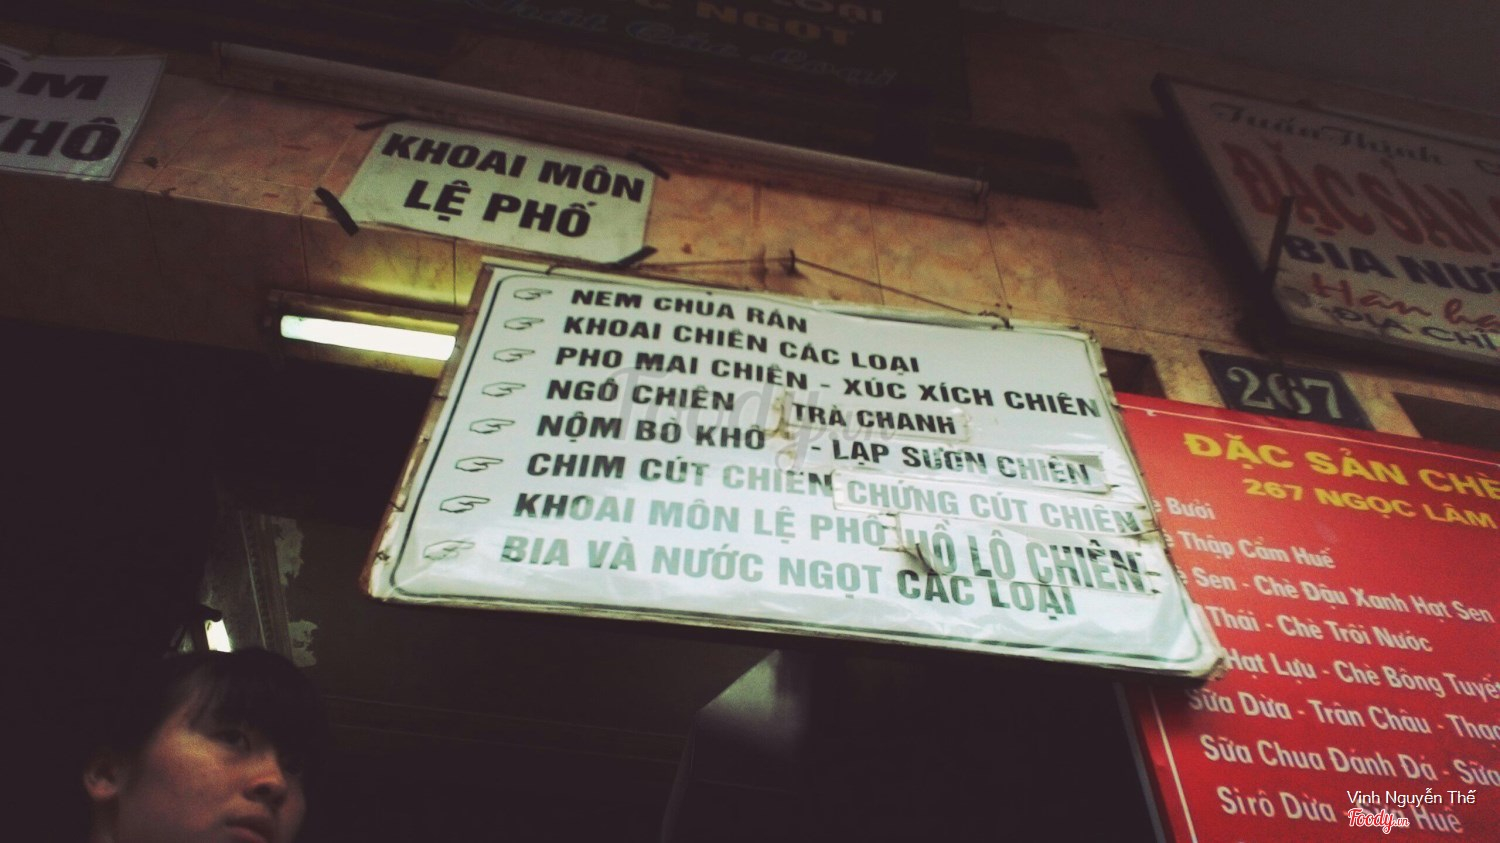 LOẠI
NGỌT
ÔM
KHÔ
KHOAI MÔN
LỆ PHỐ
NEM CHUA RÁN
KHOAI CHIÊN CÁC LOẠI
PHO MAI CHIÊN - XÚC XÍCH CHIÊN
NGÔ CHIÊN TRÀ CHANH
NỘM BÒ KHÔ - LẠP SƯỜN CHIÊN
CHIM CÚT CHIÊN CHỨNG CÚT CHIÊN
KHOAI MÔN LỆ PHỐ HỒ LÔ CHIÊN
BIA VÀ NƯỚC NGỌT CÁC LOẠI
Tuấn Thịnh
ĐẶC SẢN
BIA NƯỚ
Hân hạ
ĐỊA CHỈ
267
ĐẶC SẢN CHÈ
267 NGỌC LÂM
Bưởi
Thập Cẩm Huế
Sen - Chè Đậu Xanh Hạt Sen
Thái - Chè Trôi Nước
Hạt Lựu - Chè Bông Tuyết
Sữa Dừa - Trân Châu - Thạc
Sữa Chua Đánh Đá - Sữa
Sirô Dừa - Sữa Huế
Foody.vn
Vinh Nguyễn Thế
Foody.vn